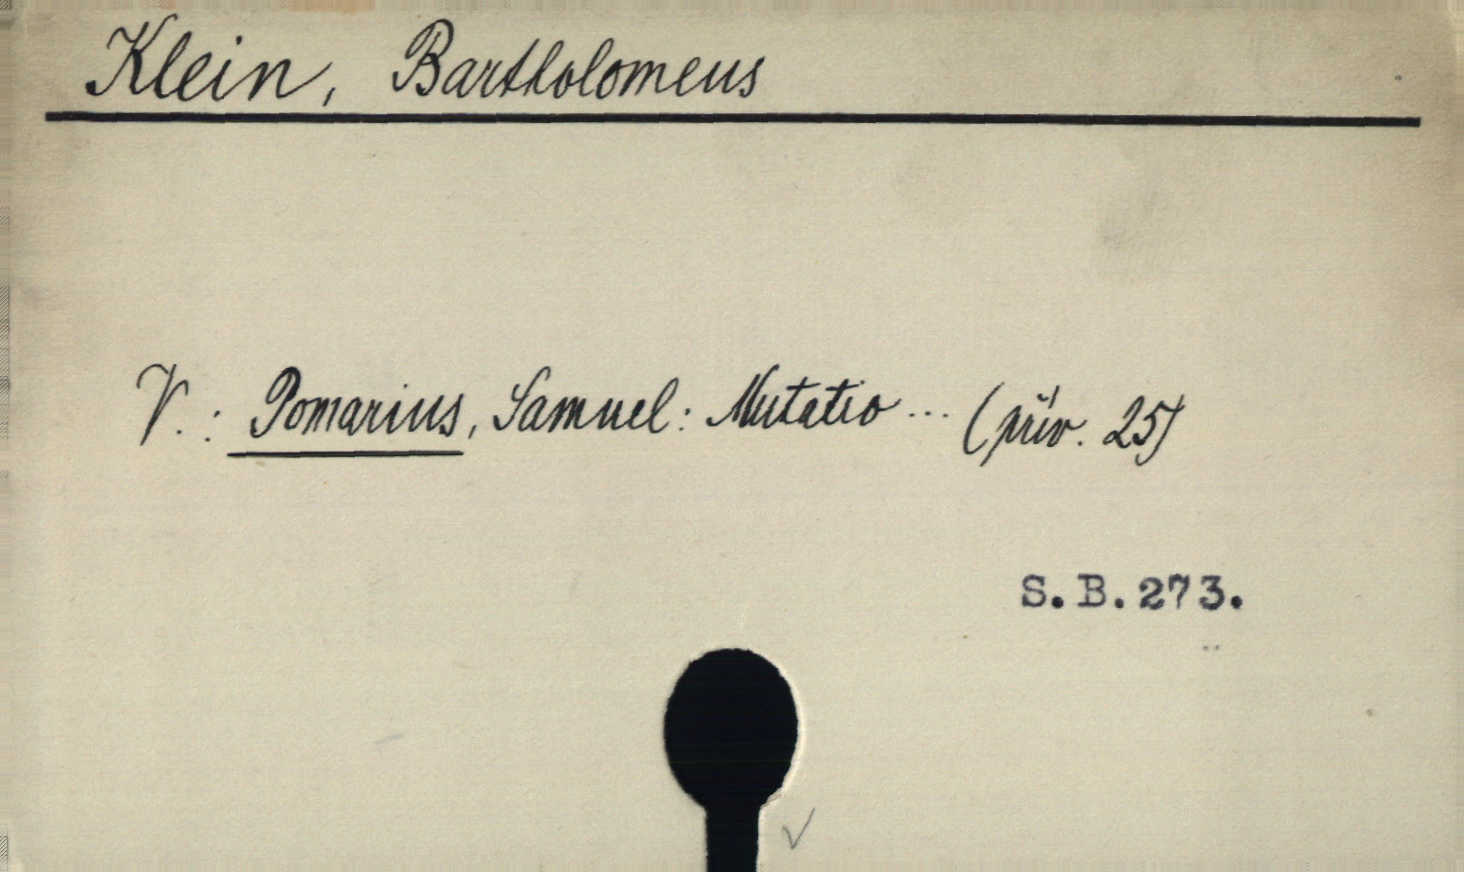 Klein, Bartholomeus
V.: Pomarius, Samuel: Mutatio ... (přív. 25)
S.B.273.